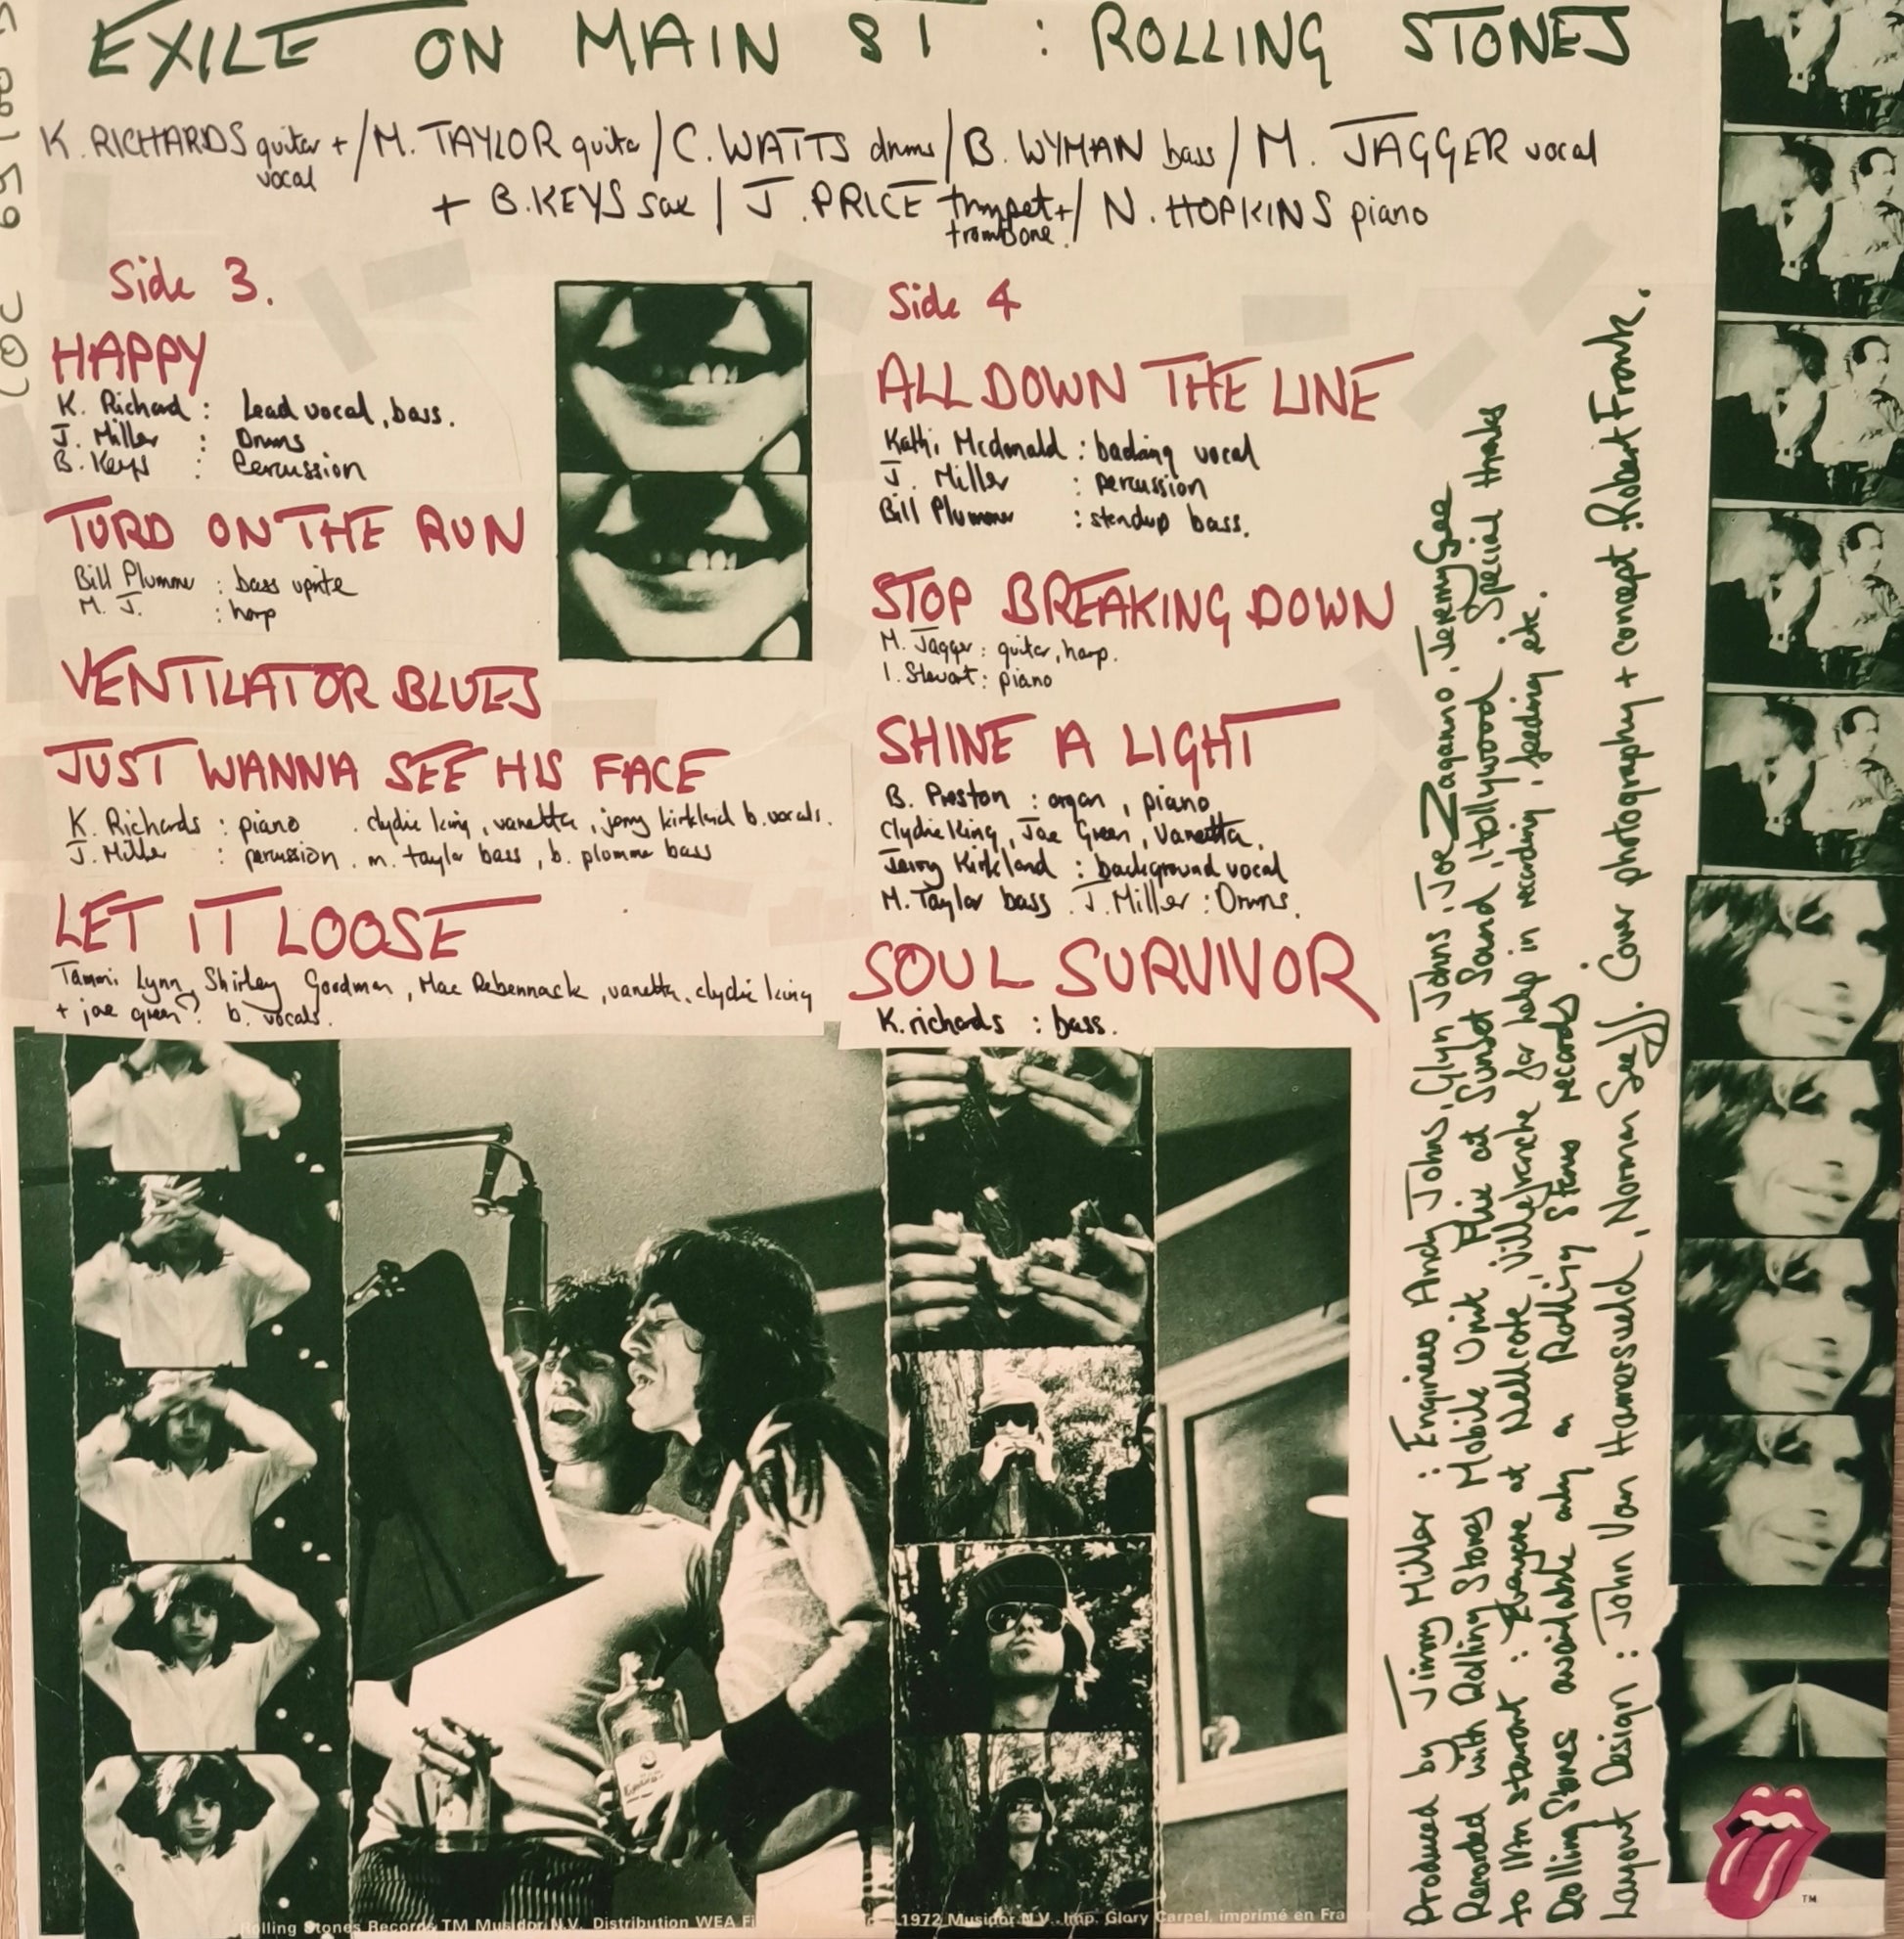 EXILE ON MAIN ST : ROLLING STONES
K. RICHARDS guitar + vocal / M. TAYLOR guitar / C. WATTS drums / B. WYMAN bass / M. JAGGER vocal
+ B. KEYS sax / J. PRICE trumpet + trombone. / N. HOPKINS piano
Side 3.
HAPPY
K. Richard : Lead vocal, bass.
J. Miller : Drums
B. Keys : Percussion
TURD ON THE RUN
Bill Plummer : bass uprite
M. J. : harp
VENTILATOR BLUES
JUST WANNA SEE HIS FACE
K. Richards : piano . clydie king, vanetta, jerry kirkland b. vocals.
J. Miller : percussion . m. taylor bass, b. plummer bass
LET IT LOOSE
Tammi Lynn, Shirley Goodman, Mac Rebennack, vanetta, clydie king
+ joe green? b. vocals.
Side 4
ALL DOWN THE LINE
Kathi Mcdonald : backing vocal
J. Miller : percussion
Bill Plummer : standup bass.
STOP BREAKING DOWN
M. Jagger : guitar, harp.
I. Stewart : piano
SHINE A LIGHT
B. Preston : organ, piano,
Clydie King, Joe Green, Vanetta,
Jerry Kirkland : background vocal
M. Taylor bass . J. Miller : Drums.
SOUL SURVIVOR
K. richards : bass.
Produced by Jimmy Miller : Engineers Andy Johns, Glyn Johns, Joe Zaganno, Jeremy Gee
Recorded with Rolling Stones Mobile Unit Plus at Sunset Sound, Hollywood, Special thanks
to Ian stewart : Everyone at Nellcote, Villefranche for help in recording, feeding etc.
Rolling Stones available only on Rolling Stones records
Layout Design : John Van Hamersveld, Norman Seeff. Cover photography + concept : Robert Frank.
COC 69100
Rolling Stones Records TM Musidor N.V. Distribution WEA Fi
1972 Musidor N.V. Imp. Glory Carpel, imprimé en Fra
TM